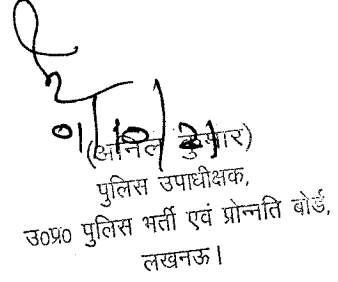 01/10/21
(अनिल कुमार)
पुलिस उपाधीक्षक,
उ०प्र० पुलिस भर्ती एवं प्रोन्नति बोर्ड,
लखनऊ।